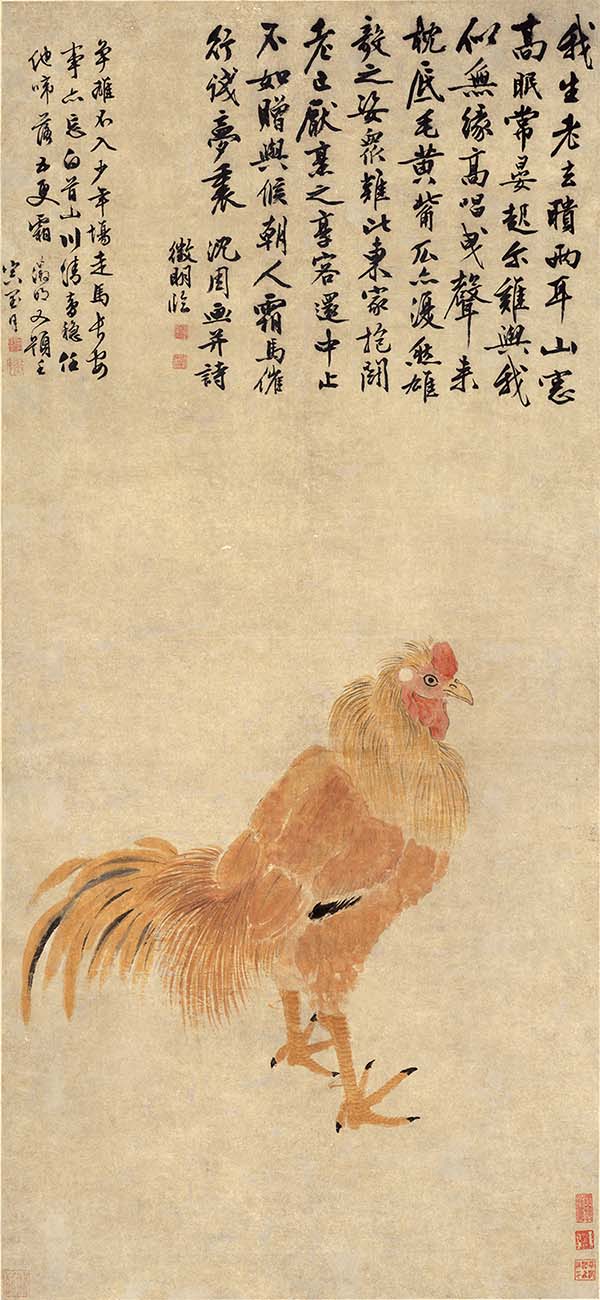 我生老去聵兩耳山窓
高眠常晏起尔雞與我
似無緣高唱曳聲来
枕底毛黄觜爪亦漫然雄
毅之姿衆難比東家抱関
老已厭烹之享客還中止
不如贈與候朝人霜馬催
行殘夢裏 沈周画并詩
徵明臨
争雄不入少年場走馬長安
事亦忘白首山川清夢穩任
他啼落五更霜 徵明又題壬
寅 月